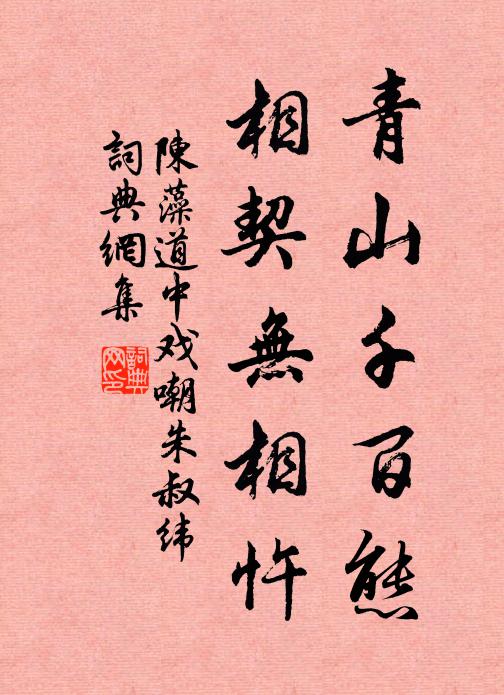 青山千百態
相契無相忤
陳藻道中戏嘲朱叔緯
詞典網集
詞典网印